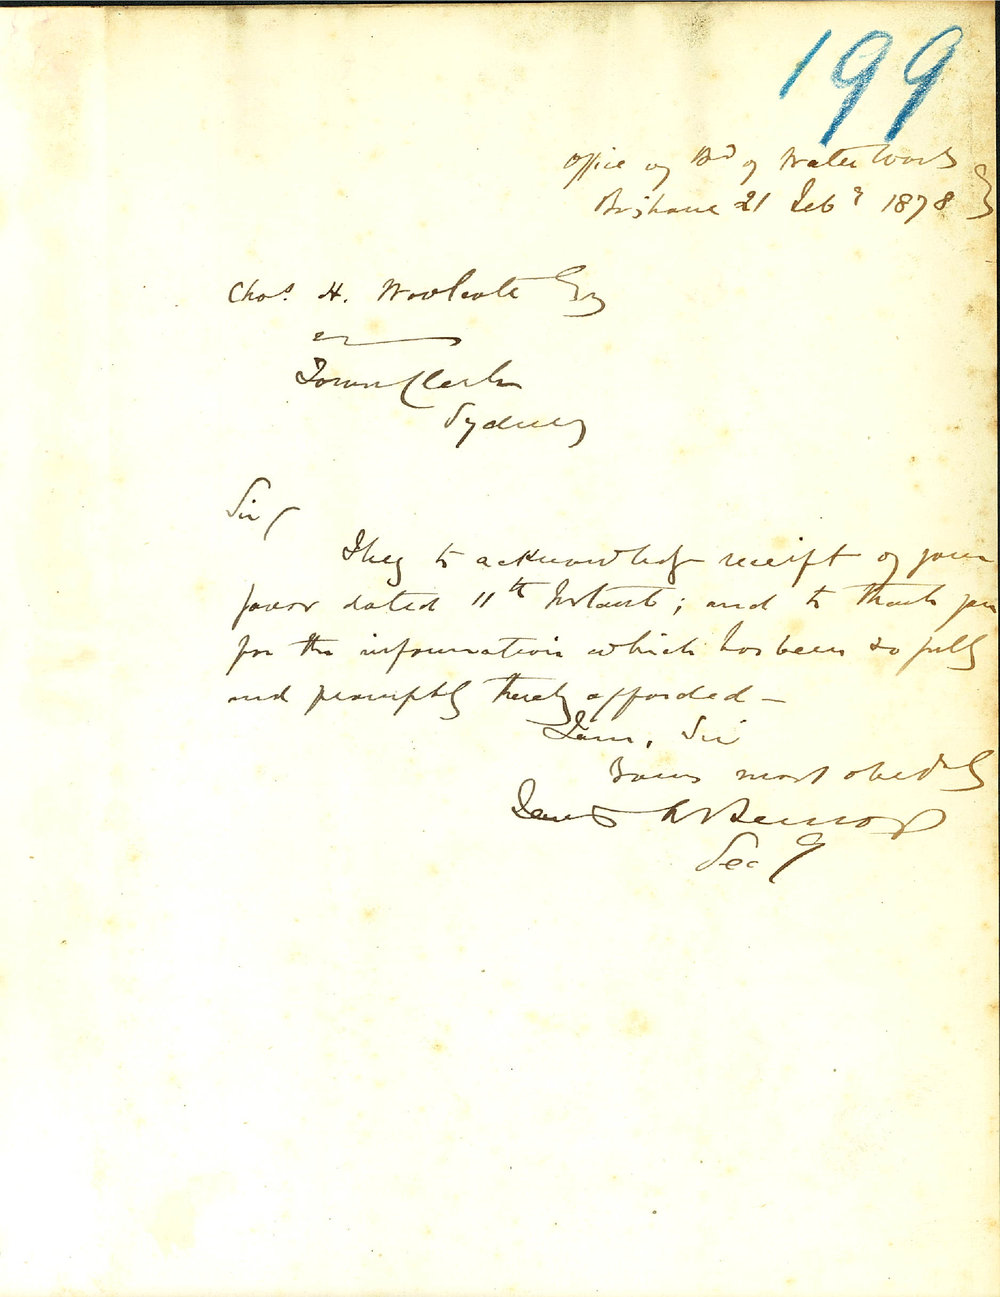 199
Office of Bd of Water Works
Brisbane 21 Feby 1878
Chas. H. Woolcott Esq
Town Clerk
Sydney
Sir
I beg to acknowledge receipt of your
favor dated 11th Instant; and to thank you
for the information which has been so fully
and promptly thereby afforded -
I am, Sir
Yours most obedtly
Secy